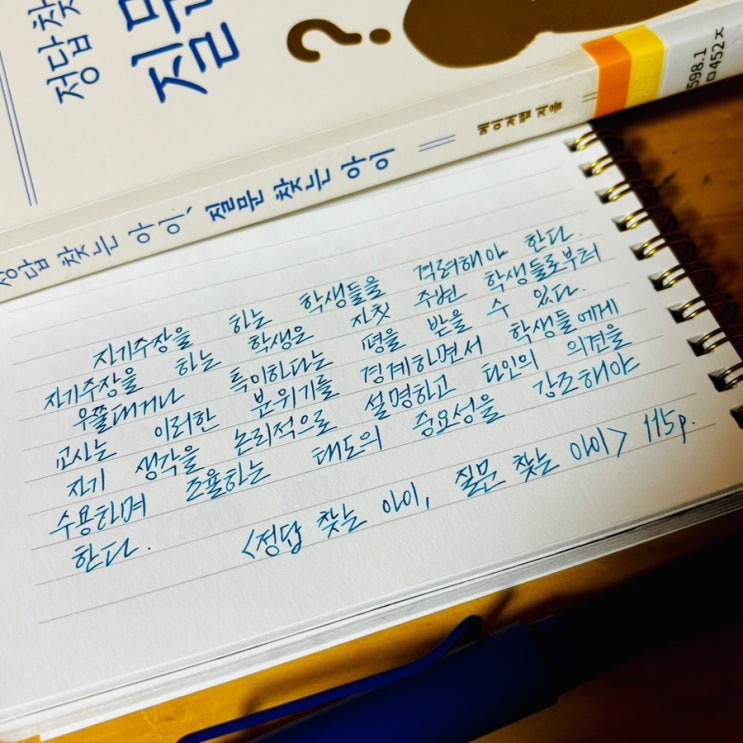 정답 찾
질문
?
598.1
ㅁ452ㅈ
정답 찾는 아이, 질문 찾는 아이
메이저맵 지음
자기주장을 하는 학생들을 격려해야 한다.
자기주장을 하는 학생은 자칫 주변 학생들로부터
우쭐대거나 특이하다는 평을 받을 수 있다.
교사는 이러한 분위기를 경계하면서 학생들에게
자기 생각을 논리적으로 설명하고 타인의 의견을
수용하며 조율하는 태도의 중요성을 강조해야
한다. <정답 찾는 아이, 질문 찾는 아이> 115p.